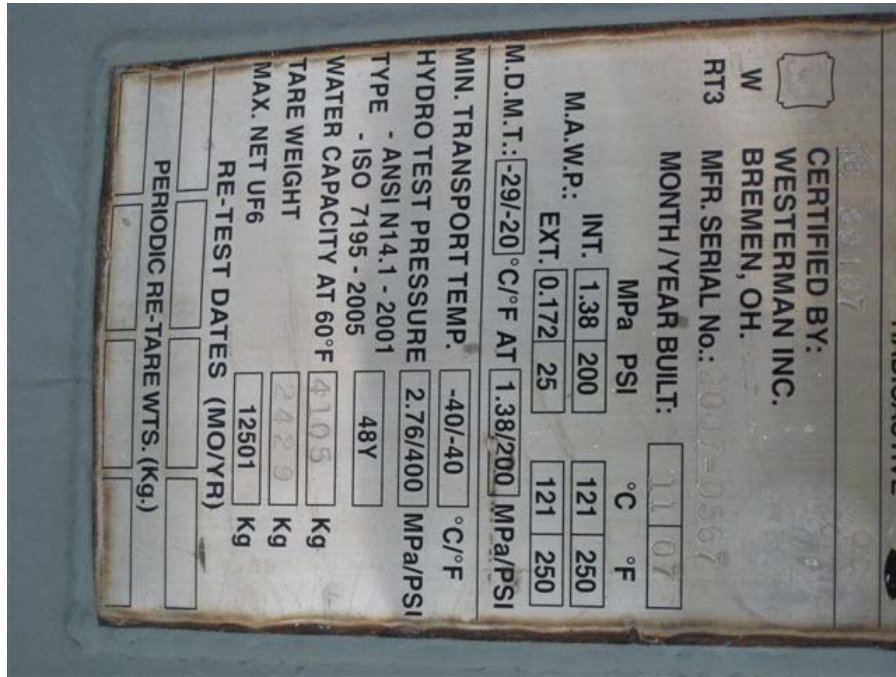 CERTIFIED BY:
WESTERMAN INC.
W BREMEN, OH.
RT3 MFR. SERIAL No.: 2007-0567
MONTH/YEAR BUILT: 11 07
MPa PSI °C °F
M.A.W.P.: INT. 1.38 200 121 250
EXT. 0.172 25 121 250
M.D.M.T.: -29/-20 °C/°F AT 1.38/200 MPa/PSI
MIN. TRANSPORT TEMP. -40/-40 °C/°F
HYDRO TEST PRESSURE 2.76/400 MPa/PSI
TYPE - ANSI N14.1 - 2001
- ISO 7195 - 2005 48Y
WATER CAPACITY AT 60°F 4105 Kg
TARE WEIGHT 2429 Kg
MAX. NET UF6 12501 Kg
RE-TEST DATES (MO/YR)
PERIODIC RE-TARE WTS. (Kg.)